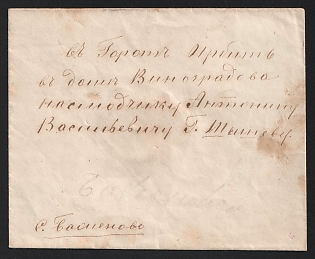 въ Городъ Ирбитъ
въ домъ Виноградова
насмодчику Антонину
Василѣевичу Г. Тышеву
с. Баженово